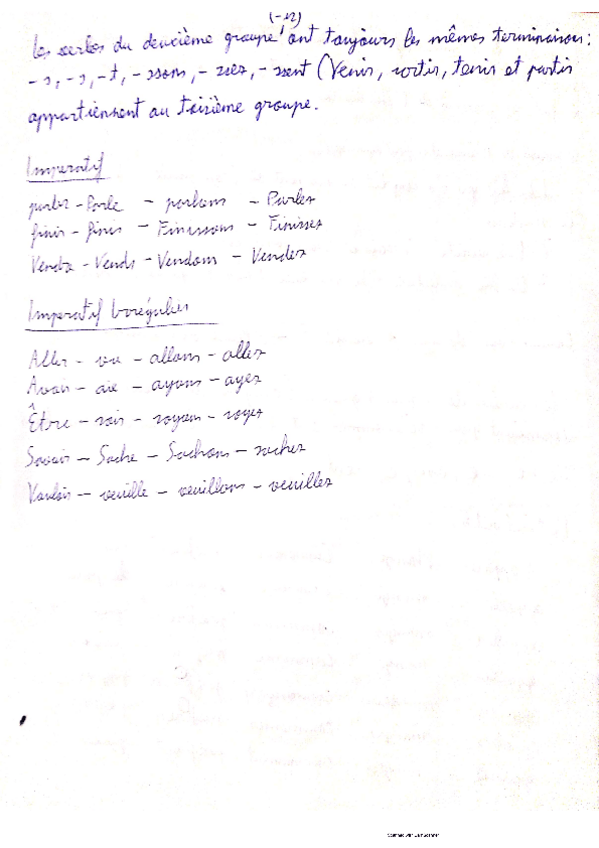 (-ir)
les verbes du deuxième groupe ont toujours les mêmes terminaison:
-s, -s, -t, -ssons, -ssez, -ssent (Venir, sortir, tenir et partir
appartiennent au toisième groupe.
Imperatif
parler - Parle - parlons - Parlez
finir - finis - Finissons - Finissez
Vendre - Vends - Vendons - Vendez
Imperatif Irrégulier
Aller - va - allons - allez
Avoir - aie - ayons - ayez
Être - sois - soyons - soyez
Savoir - Sache - Sachons - sachez
Vouloir - veuille - veuillons - veuillez
Scanned with CamScanner